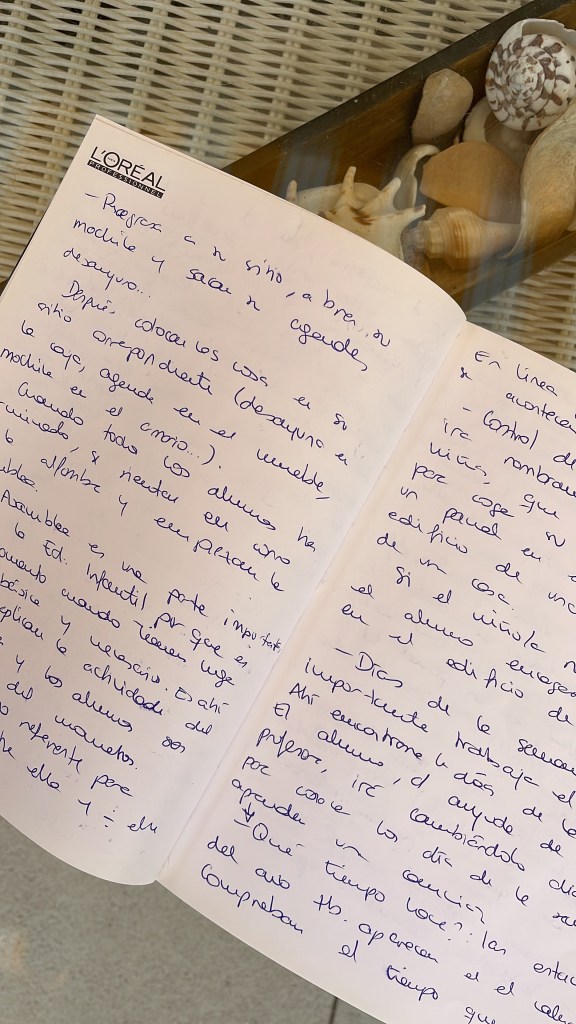 L'ORÉAL
PROFESSIONNEL
- Progresa a su sitio, abren su
mochila y sacan su agenda,
desayuno...
Después, colocan las cosas en su
sitio correspondiente (desayuno en
la caja, agenda en el mueble,
mochila en el armario...).
Cuando todos los alumnos han
terminado, se sientan en corro
la alfombra y empiezan la
Asamblea es una parte importante
la Ed. Infantil porque es
momento cuando tienen lugar
básica y necesario. Es ahí
explican la actividades del
y los alumnos son
del momento.
referente para
ella y
En línea
acontecer
- Control de
irá nombran
niña, que
por coge su
un panel en
edificio de un
de una casa.
Si el niño/a n
el alumno encarga
en el edificio de
- Días de la semana
importante trabaja el
Ahí encontramos los días de la
El alumno, el ayuda de
profesor, irá cambiándolos dia
por conoce los día de la
aprender una canción
- ¿Qué tiempo hace?: las estac
del año tb. aparecen en el calen
Comprueban el tiempo que